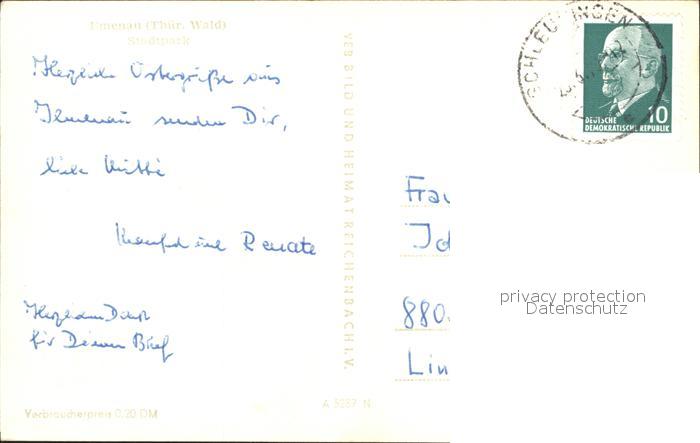 Ilmenau (Thür. Wald)
Stadtpark
Herzliche Ostergrüße aus
Ilmenau senden Dir,
liebe
Manfred und Renate
Herzlichen Dank
für Deinen Brief
Verbraucherpreis 0,20 DM
VEB BILD UND HEIMAT REICHENBACH i. V.
A 5287 N
SCHLEUSINGEN
10
DEUTSCHE
DEMOKRATISCHE REPUBLIK
Frau
880
Lin
privacy protection
Datenschutz